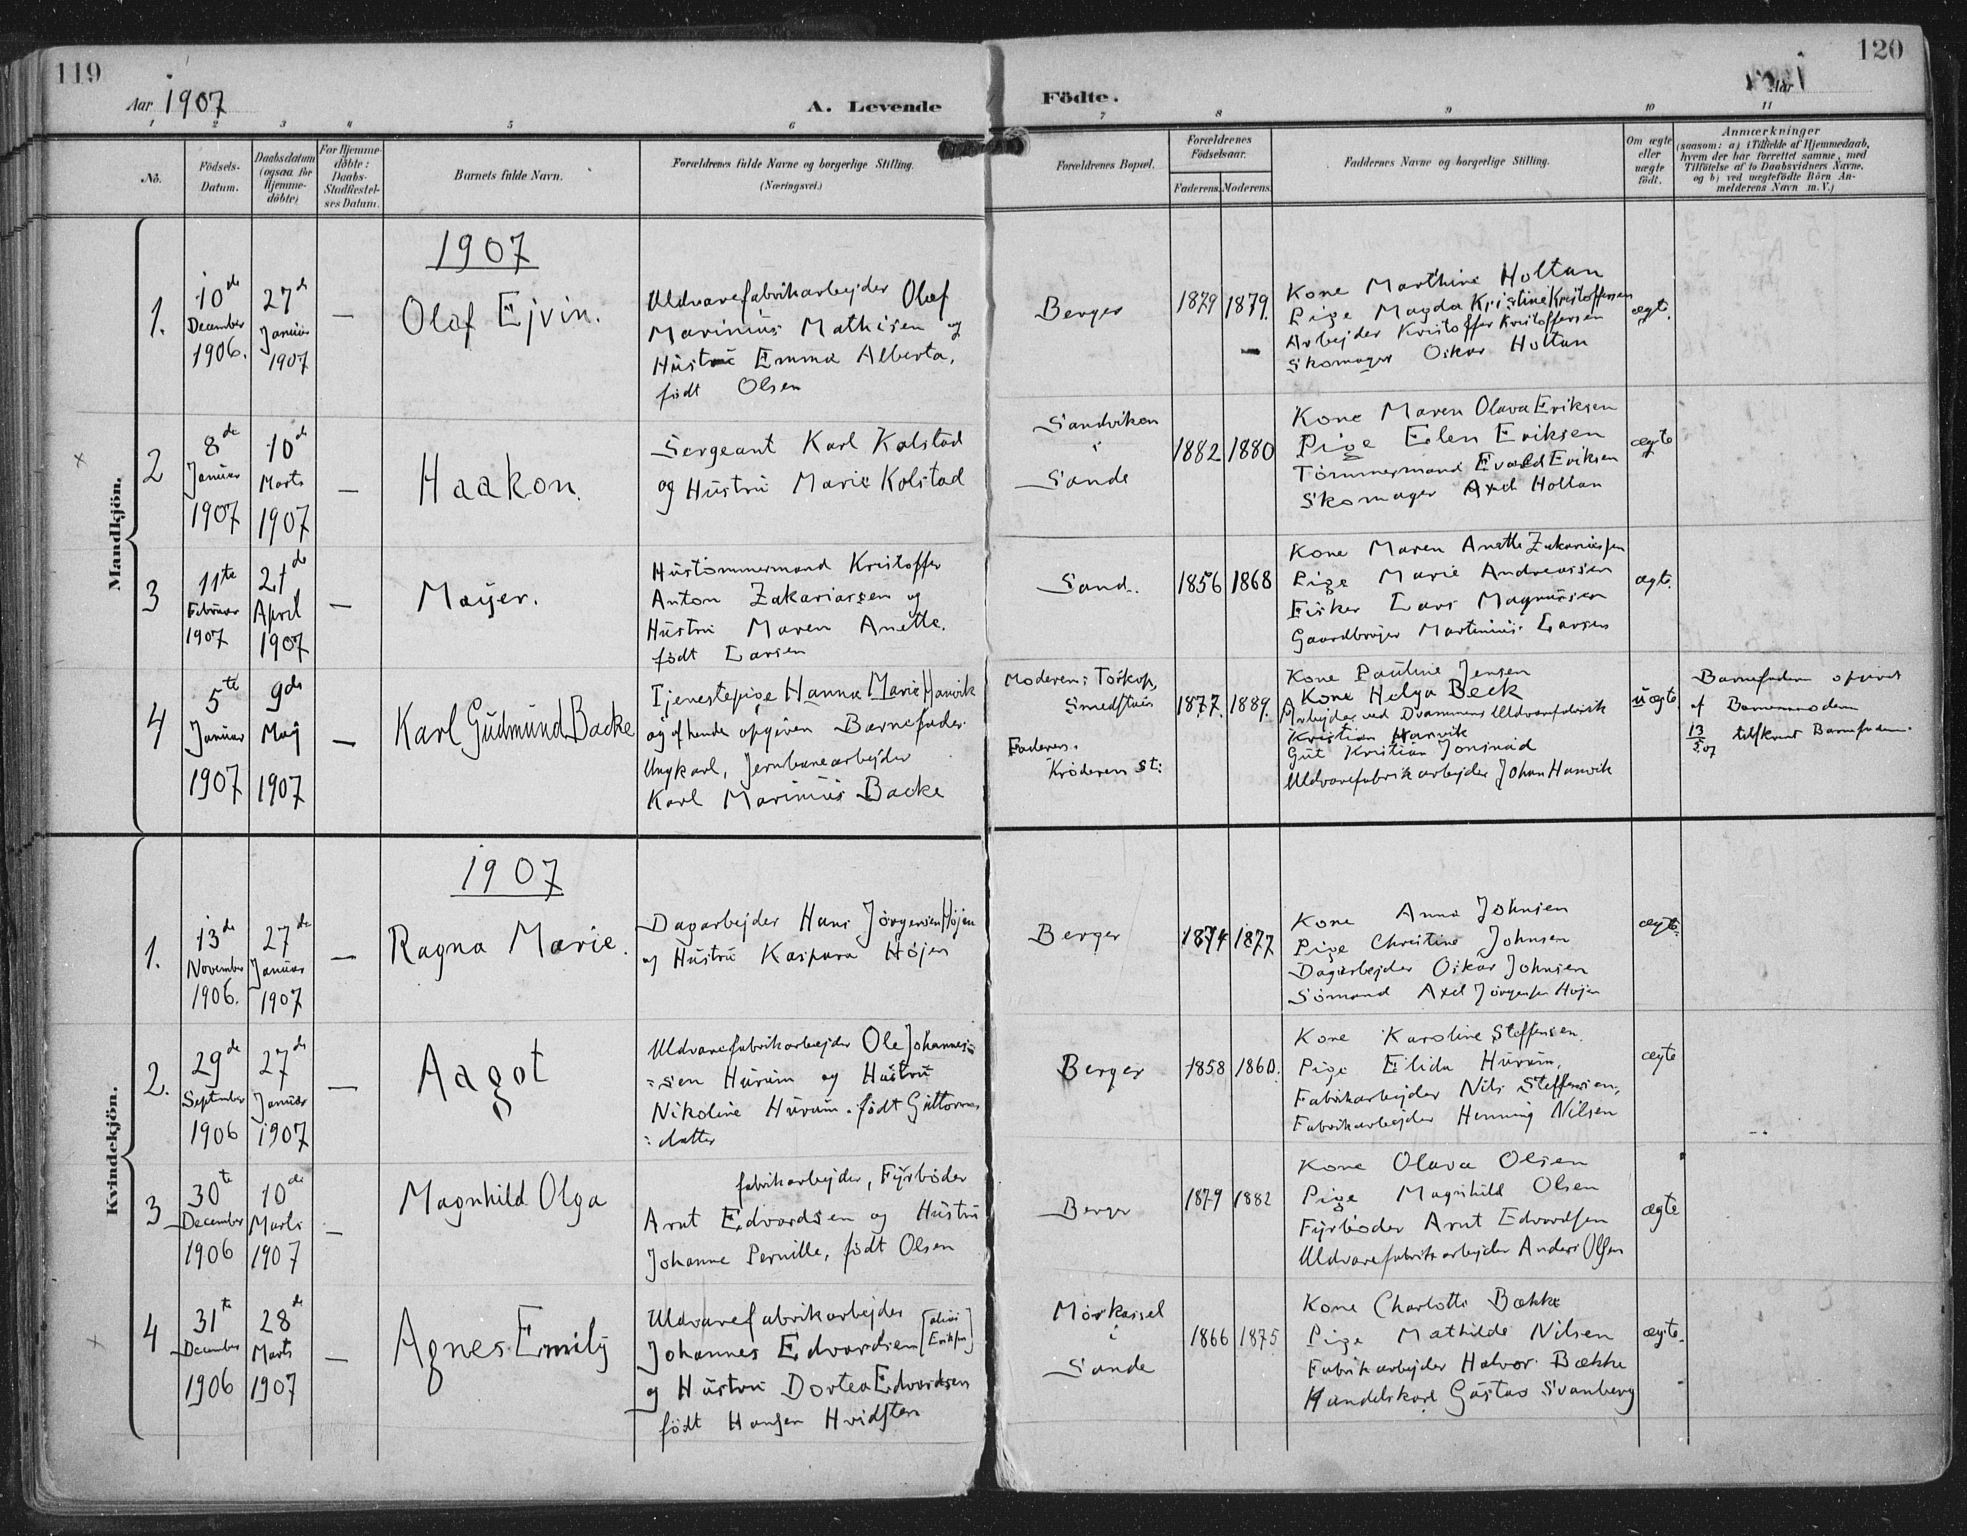 119
Aar 1907
A. Levende
Födte.
Aar
120
1 2 3 4 5 6 7 8 9 10 11
No.
Födsels-Datum.
Daabsdatum (ogsaa for Hjemme-döbte)
For Hjemme-döbte: Daabs-Stadfæstel-ses Datum.
Barnets fulde Navn.
Forældrenes fulde Navne og borgerlige Stilling. (Næringsvei.)
Forældrenes Bopæl.
Forældrenes Födselsaar.
Faderens. Moderens.
Faddernes Navne og borgerlige Stilling.
Om ægte eller uægte født.
Anmærkninger
(saasom: a) i Tilfælde af Hjemmedaab,
hvem der har forrettet samme, med
Tilföielse af to Daabsvidners Navne,
og b) ved uægtefödte Börn An-
melderens Navn m. V.)
Mandkjön.
1907
1.
10de December 1906.
27de Januar 1907
—
Olaf Ejvin.
Uldvarefabrikarbejder Olaf
Marinius Mathisen og
Hustru Emma Alberta,
født Olsen
Berger
1879
1879.
Kone Marthine Holtan
Pige Magda Kristine Kristoffersen
Arbejder Kristoffer Kristoffersen
Skomager Oskar Holtan
ægte.
2
8de Januar 1907
10de Marts 1907
—
Haakon.
Sergeant Karl Kolstad
og Hustru Marie Kolstad
Sandviken
i
Sande
1882
1880
Kone Maren Olava Eriksen
Pige Ellen Eriksen
Tømmermand Evald Eriksen
Skomager Axel Holtan
ægte
3
11te Februar 1907
21de April 1907
—
Majer.
Hustømmermand Kristoffer
Anton Zakariassen og
Hustru Maren Anette.
født Larsen
Sand.
1856
1868
Kone Maren Anette Zakariassen
Pige Marie Andreassen
Fisker Lars Magnussen
Gaardbruger Martinius Larsen
ægte.
4
5te Januar 1907
9de Maj 1907
—
Karl Gudmund Backe
Tjenestepige Hanna Marie Hanvik
og af hende opgiven Barnefader
Ungkarl, Jernbanearbejder
Karl Marinius Backe
Moderen: Torkop,
Smedstuen
Faderen.
Krøderen St:
1877.
1889.
Kone Pauline Jensen
Kone Helga Beck
Arbejder ved Drammens Uldvarefabrik
Kristian Hanvik
Gut Kristian
Uldvarefabrikarbejder Johan Hanvik
uægte
Barnefaderen opgivet
af Barnemoderen
13/5 07 tilskrevet Barnefaderen.
Kvindekjön.
1907
1.
13de November 1906.
27de Januar 1907
—
Ragna Marie.
Dagarbejder Hans Jørgensen Højen
og Hustru Kaspara Højen
Berger
1874
1877
Kone Anna Johnsen
Pige Christine Johnsen
Dagarbejder Oskar Johnsen
Sømand Axel Jørgensen Højen
ægte.
2.
29de September 1906
27de Januar 1907
—
Aagot
Uldvarefabrikarbejder Ole Johannes=
=sen Hurum og Hustru
Nikoline Hurum. født Guttorms
=datter
Berger
1858
1860.
Kone Karoline Steffensen.
Pige Elida Hurum,
Fabrikarbejder Nils Steffensen,
Fabrikarbejder Henning Nilsen
ægte
3
30te December 1906
10de Marts 1907
—
Magnhild Olga
fabrikarbejder, Fyrbøder
Arnt Edvardsen og Hustru
Johanne Pernille, født Olsen
Berger
1879
1882
Kone Olava Olsen
Pige Magnhild Olsen
Fyrbøder Arnt Edvardsen
Uldvarefabrikarbejder Anders Olsen
ægte
4
31te December 1906
28de Marts 1907
—
Agnes Emily
Uldvarefabrikarbejder
Johannes Edvardsen [alias Eriksen]
og Hustru Dortea Edvardsen
født Hansen Hvidsten
Mørkassel
i
Sande
1866
1875
Kone Charlotte Bække
Pige Mathilde Nilsen
Fabrikarbejder Halvor Bække
Handelskarl Gustav Svanberg
ægte.